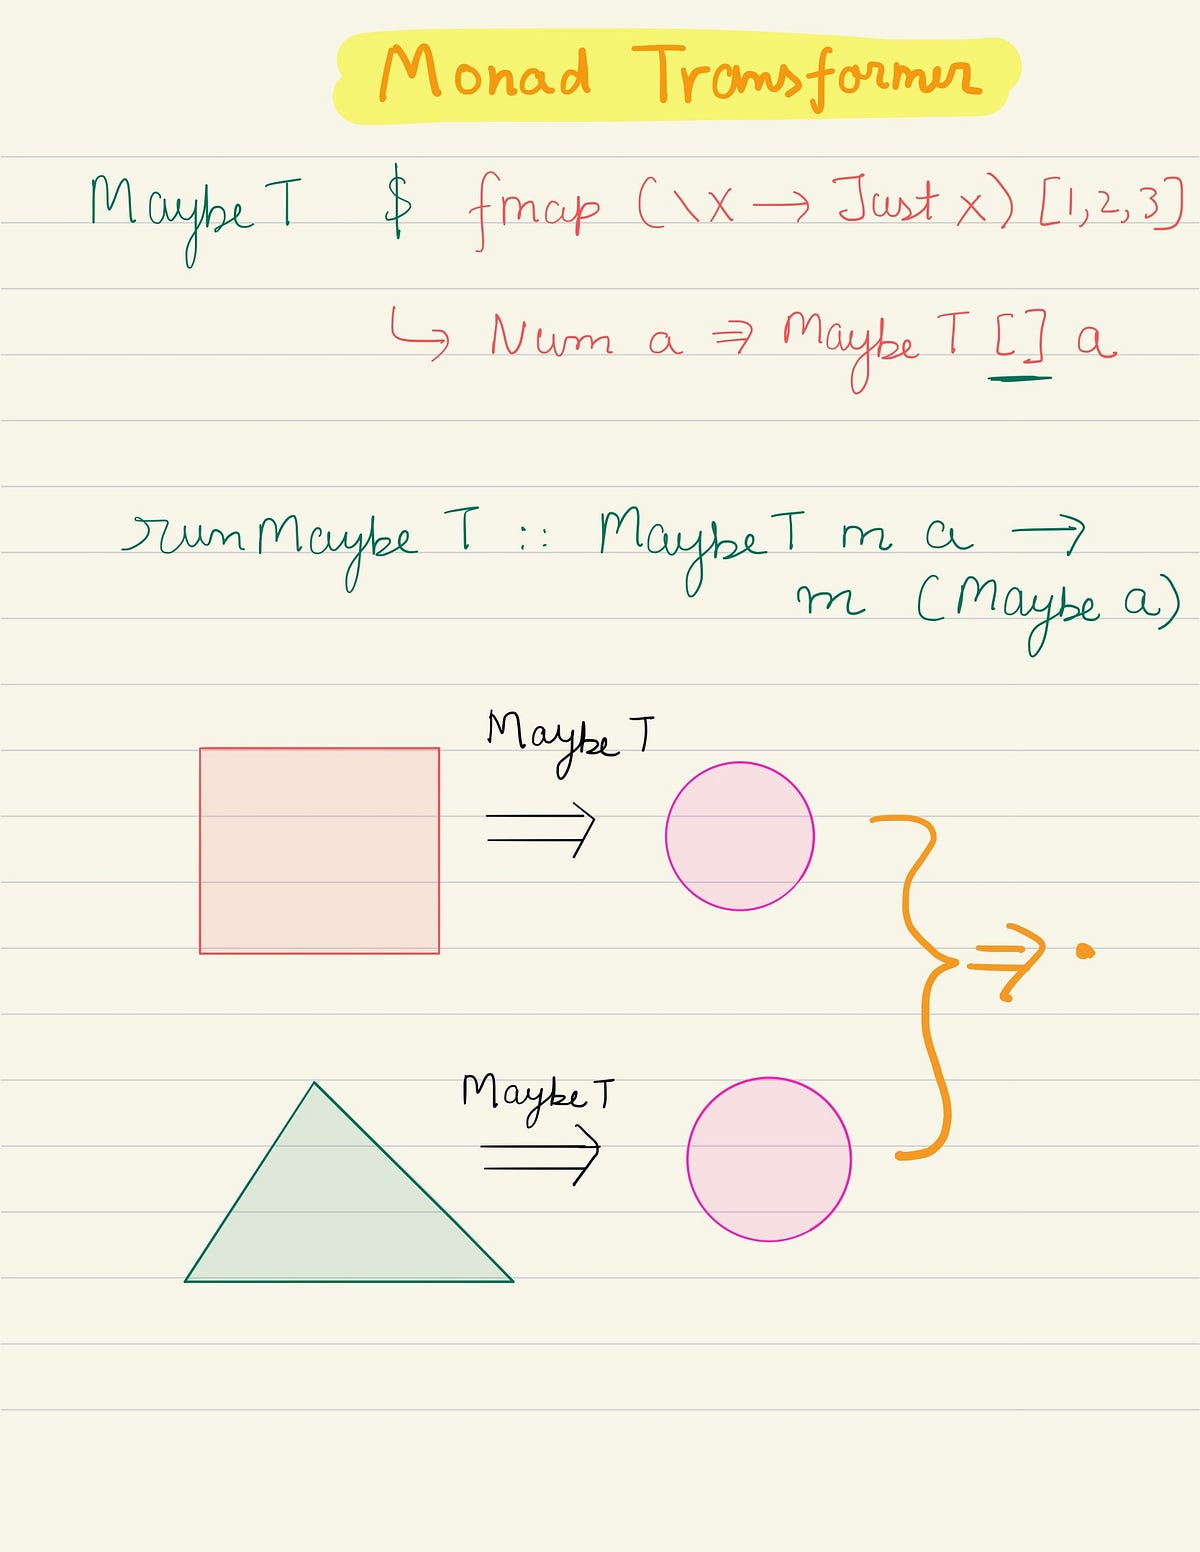 Monad Transformer
MaybeT $ fmap (\x → Just x) [1,2,3]
↳ Num a ⇒ MaybeT [] a
runMaybeT :: MaybeT m a →
m (Maybe a)
MaybeT
⇒
⇒ •
MaybeT
⇒